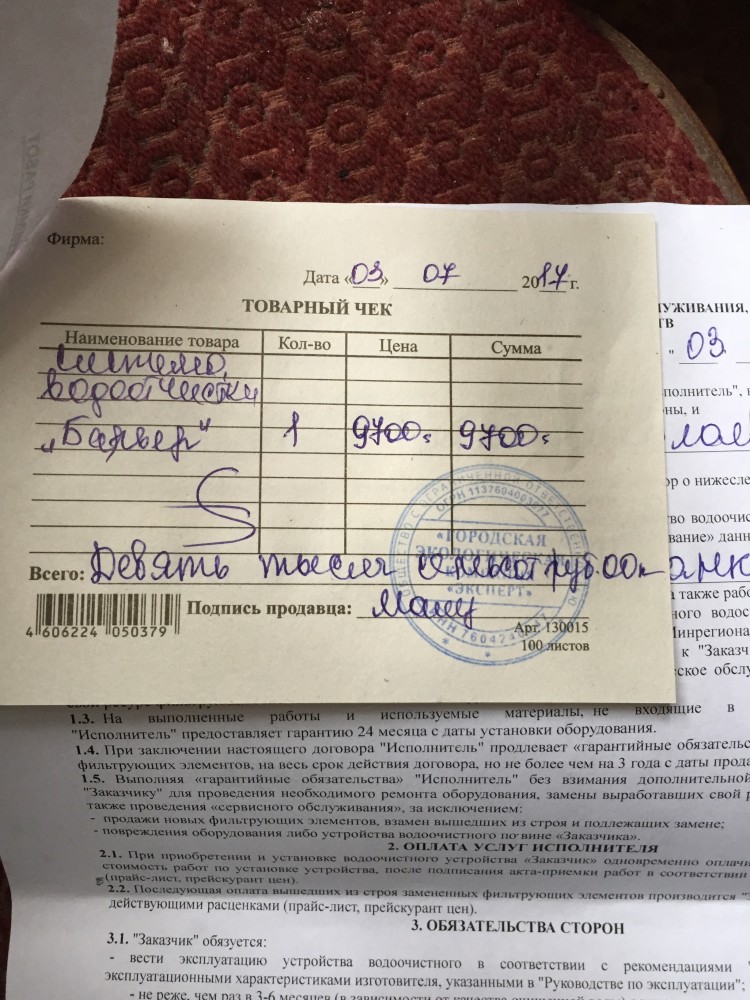 Фирма:
Дата «03» 07 2017 г.
ТОВАРНЫЙ ЧЕК
Наименование товара Кол-во Цена Сумма
система
водоотчистки
„Барьер" 1 9700= 9700=
Всего: Девять тысяч семьсот руб. 00к
Подпись продавца:
4 606224 050379
Арт. 130015
100 листов
ОБЩЕСТВО С ОГРАНИЧЕННОЙ ОТВЕТСТВЕННОСТЬЮ
«ГОРОДСКАЯ
ЭКОЛОГИЧЕСКАЯ
«ЭКСПЕРТ»
УЖИВАНИЯ,
ТВ
" 03
полнитель", в
оны, и
ор о нижесле
во водоочис
вание» данн
а также рабо
ного водос
Минрегиона
к "Заказч
еское обслу
1.3. На выполненные работы и используемые материалы, не входящие в
"Исполнитель" предоставляет гарантию 24 месяца с даты установки оборудования.
1.4. При заключении настоящего договора "Исполнитель" продлевает «гарантийные обязательс
фильтрующих элементов, на весь срок действия договора, но не более чем на 3 года с даты прода
1.5. Выполняя «гарантийные обязательства» "Исполнитель" без взимания дополнительной
"Заказчику" для проведения необходимого ремонта оборудования, замены выработавших свой р
также проведения «сервисного обслуживания», за исключением:
- продажи новых фильтрующих элементов, взамен вышедших из строя и подлежащих замене;
- повреждения оборудования либо устройства водоочистного по вине «Заказчика».
2. ОПЛАТА УСЛУГ ИСПОЛНИТЕЛЯ
2.1. При приобретении и установке водоочистного устройства «Заказчик» одновременно оплачи
стоимость работ по установке устройства, после подписания акта-приемки работ в соответствии
(прайс-лист, прейскурант цен).
2.2. Последующая оплата вышедших из строя замененных фильтрующих элементов производится "
действующими расценками (прайс-лист, прейскурант цен).
3. ОБЯЗАТЕЛЬСТВА СТОРОН
3.1. "Заказчик" обязуется:
- вести эксплуатацию устройства водоочистного в соответствии с рекомендациями
эксплуатационными характеристиками изготовителя, указанными в "Руководстве по эксплуатации";
- не реже, чем раз в 3-6 месяцев (в зависимости от качества